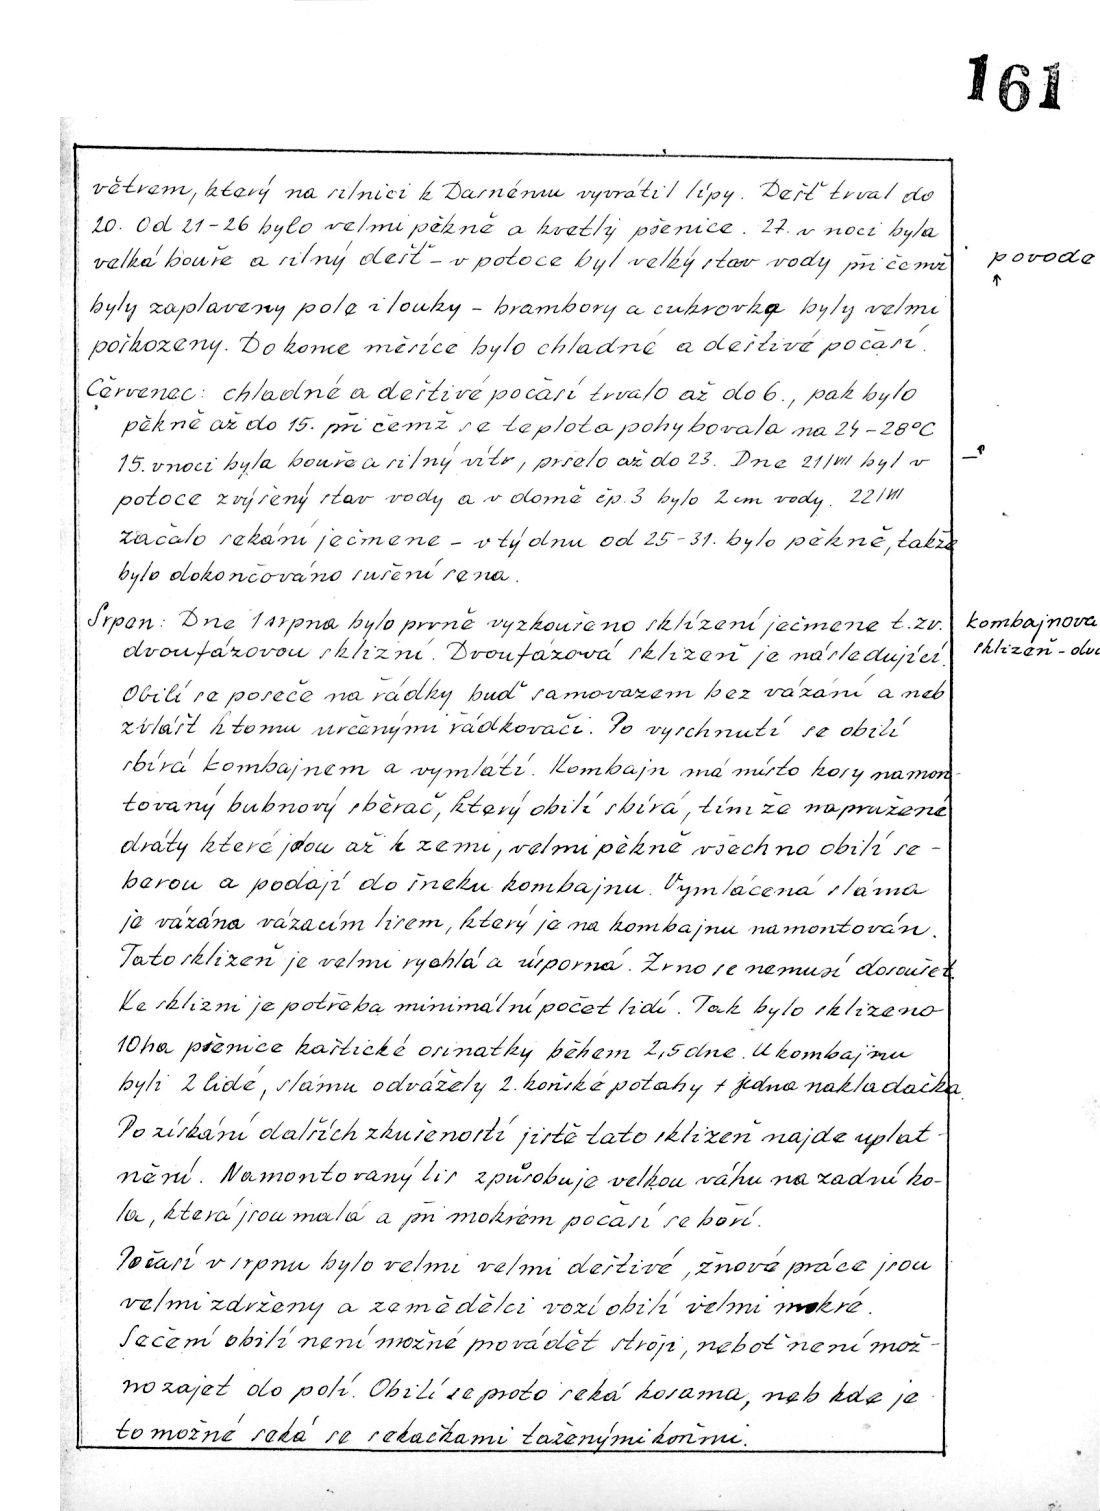 161
větrem, který na silnici k Dasnému vyvrátil lípy. Dešť trval do
20. Od 21-26 bylo velmi pěkně a kvetly pšenice. 27. v noci byla
velká bouře a silný dešť - v potoce byl velký stav vody při čemž
povode
byly zaplaveny pole i louky - brambory a cukrovka byly velmi
poškozeny. Do konce měsíce bylo chladné a deštivé počasí.
Červenec: chladné a deštivé počasí trvalo až do 6., pak bylo
pěkně až do 15. při čemž se teplota pohybovala na 24-28°C
15. v noci byla bouře a silný vítr, pršelo až do 23. Dne 21/VII byl v
potoce zvýšený stav vody a v domě čp. 3 bylo 2 cm vody. 22/VII
začalo sekání ječmene - v týdnu od 25-31. bylo pěkně, takže
bylo dokončováno sušení sena.
Srpen: Dne 1 srpna bylo prvně vyzkoušeno sklízení ječmene t.zv.
kombajnova
dvoufázovou sklizní. Dvoufázová sklizeň je následující.
sklizeň - dvo
Obilí se poseče na řádky buď samovazem bez vázání a neb
zvlášt k tomu určenými řádkovači. Po vyschnutí se obilí
sbírá kombajnem a vymlátí. Kombajn má místo kosy namon-
tovaný bubnový sběrač, který obilí sbírá, tím že napružené
dráty které jdou až k zemi, velmi pěkně všechno obilí se-
berou a podají do šneku kombajnu. Vymlácená sláma
je vázána vázacím lisem, který je na kombajnu namontován.
Tato sklizeň je velmi rychlá a úsporná. Zrno se nemusí dosoušet.
Ke sklizni je potřeba minimální počet lidí. Tak bylo sklizeno
10ha pšenice kaštické osinatky během 2,5 dne. U kombajnu
byli 2 lidé, slámu odvážely 2. koňské potahy + jedna nakladačka.
Po získání dalších zkušeností jistě tato sklizeň najde uplat-
nění. Namontovaný lis způsobuje velkou váhu na zadní ko-
la, která jsou malá a při mokrém počasí se boří.
Počasí v srpnu bylo velmi velmi deštivé, žnové práce jsou
velmi zdrženy a zemědělci vozí obilí velmi mokré.
Sečení obilí není možné provádět stroji, neboť není mož-
no zajet do polí. Obilí se proto seká kosama, neb kde je
to možné seká se sekačkami taženými koňmi.